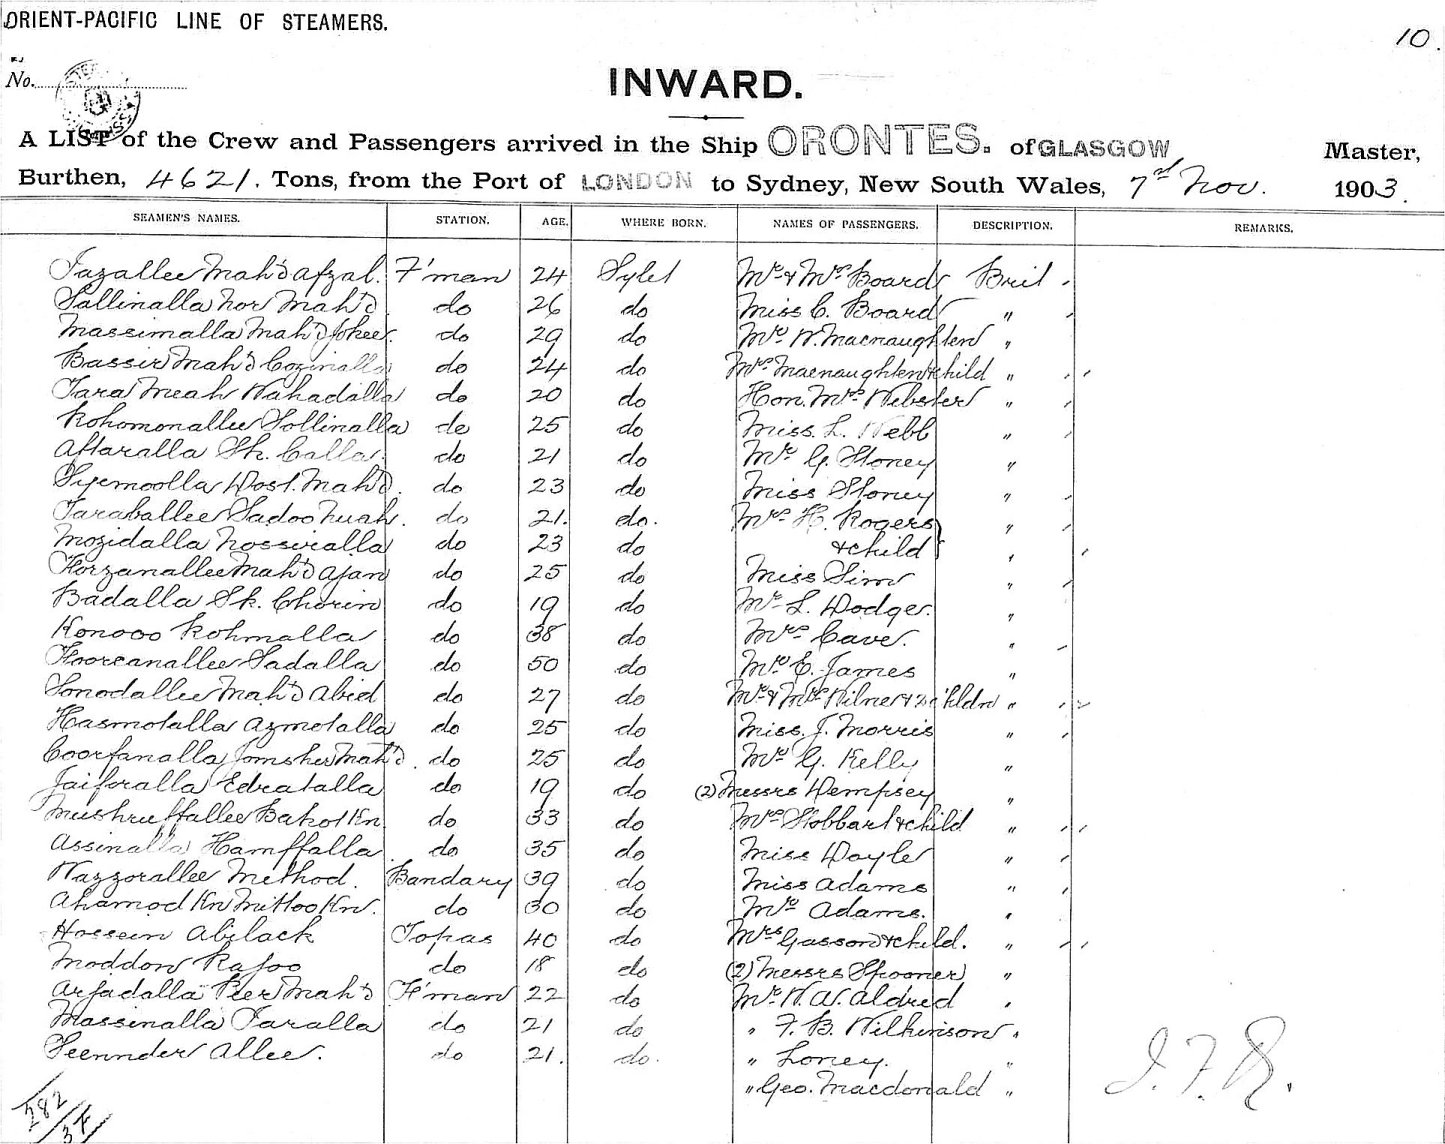 ORIENT-PACIFIC LINE OF STEAMERS.
10.
No.
INWARD.
A LIST of the Crew and Passengers arrived in the Ship ORONTES. of GLASGOW Master,
Burthen, 4621. Tons, from the Port of LONDON to Sydney, New South Wales, 7th Nov. 1903.
SEAMEN'S NAMES. STATION. AGE. WHERE BORN. NAMES OF PASSENGERS. DESCRIPTION. REMARKS.
Fazallee Mah'd Afzal. F'man 24 Sylet Mr & Mrs Board Brit
Sallinalla Nor Mah'd do 26 do Miss C. Board "
Massimalla Mah'd do 29 do Mr W. Macnaughten "
Bassir Mah'd do 24 do Mrs Macnaughten & child "
Tara Meah Wahadalla do 20 do Hon. Mrs Webster "
Rohomonallee Sollinalla do 25 do Miss L. Webb "
Aftaralla Sk. Calla. do 21 do Mr G. Stoney "
Syemoolla Dost. Mah'd. do 23 do Miss Stoney "
Taraballee Sadoo do 21. do. Mrs H. Rogers "
Mozidalla Nossiralla do 23 do & child "
Forzanallee Mah'd Ajan do 25 do Miss Sim "
Badalla Sk. Chorin do 19 do Mr L. Dodge. "
Konooo Rohmalla do 38 do Mrs Cave. "
Noorcanallee Sadalla do 50 do Mr E. James "
Sonodallee Mah'd Abid do 27 do Mr & Mrs Milne & 2 childn "
Hasmotalla Azmotalla do 25 do Miss. J. Morris "
Coorfanalla Jomsher Mah'd. do 25 do Mr G. Kelly "
Jaiforalla Edratalla do 19 do (2) Messrs Dempsey "
Mushruffallee Bakot Kn. do 33 do Mrs Stobbart & child "
Assinalla Hamffalla do 35 do Miss Doyle "
Wazzorallee Method. Bandary 39 do Miss Adams "
Ahamod Kn Mittoo Kn. do 30 do Mr Adams. "
Hossein Abilack Topas 40 do Mrs Gasson & child. "
Moddon Rajoo do 18 do (2) Messrs Spooner "
Arfadalla Peer Mah'd F'man 22 do Mr W. A. Aldred "
Massinalla Taralla do 21 do " F. B. Wilkinson "
Seennder Allee. do 21. do. " Loney. "
" Geo. Macdonald "
282
37